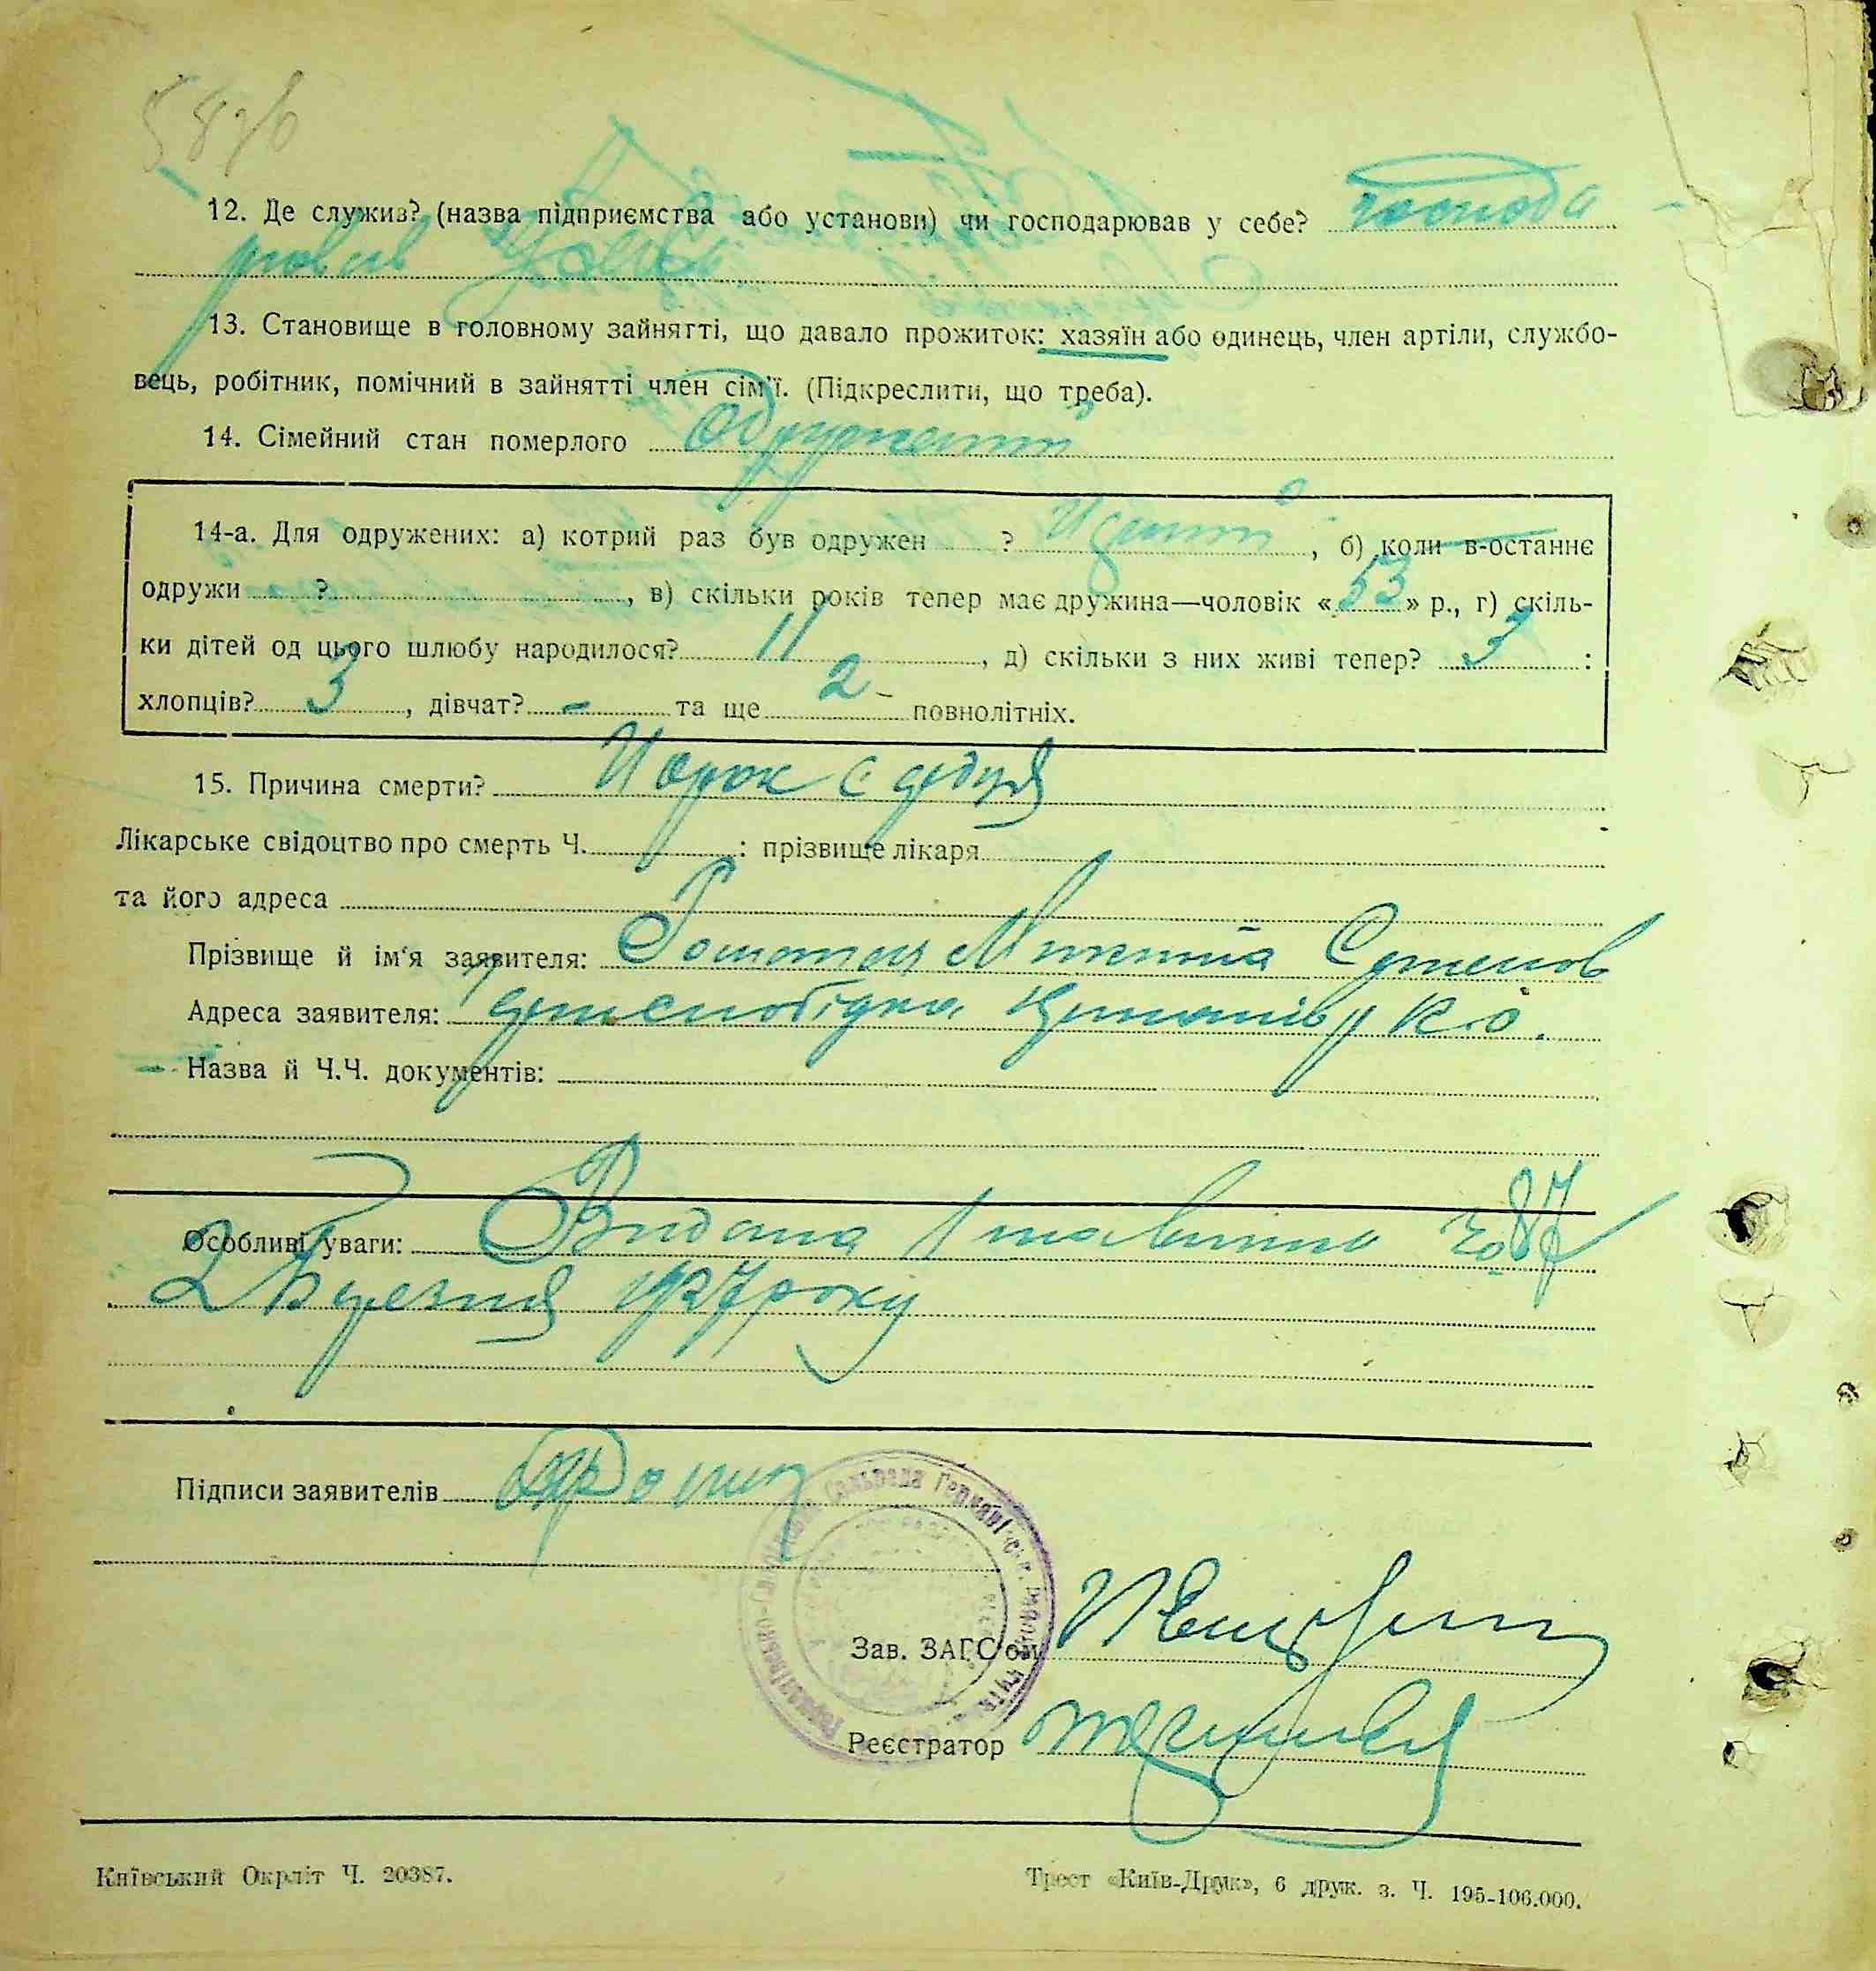 58зв
12. Де служив? (назва підприємства або установи) чи господарював у себе? господа
рював
13. Становище в головному зайнятті, що давало прожиток: хазяїн або одинець, член артіли, службо-
вець, робітник, помічний в зайнятті член сім'ї. (Підкреслити, що треба).
14. Сімейний стан померлого Одружений
14-а. Для одружених: а) котрий раз був одружен ? , б) коли в-останнє
одружи ? , в) скільки років тепер має дружина—чоловік «53» р., г) скіль-
ки дітей од цього шлюбу народилося? 11 , д) скільки з них живі тепер? 3 :
хлопців? 3 , дівчат? - та ще 2 повнолітніх.
15. Причина смерти? Порок сердця
Лікарське свідоцтво про смерть Ч. : прізвище лікаря
та його адреса
Прізвище й ім'я заявителя: Семенов
Адреса заявителя:
Назва й Ч.Ч. документів:
Особливі уваги: Видана 87
2 Березня 1927 року
Підписи заявителів
Зав. ЗАГС'ом
Реєстратор
Київський Окрліт Ч. 20387.
Трест «Київ-Друк», 6 друк. з. Ч. 195-106.000.